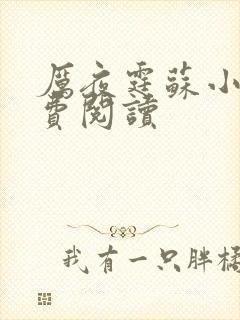 厲夜霆蘇小
費閱讀
我有一只胖橘